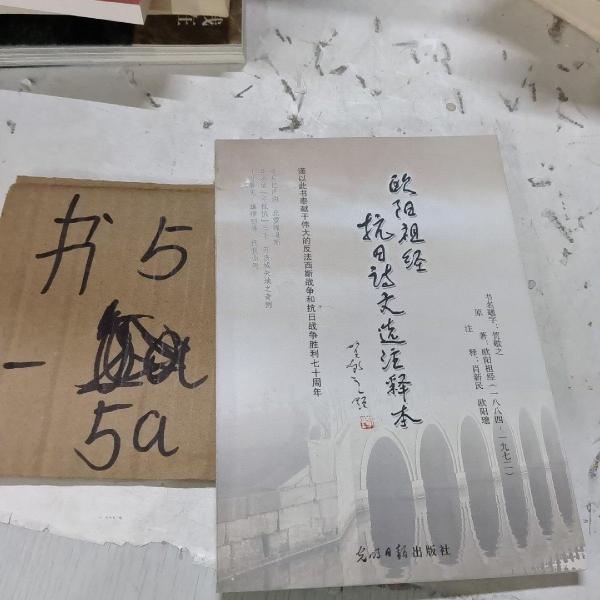 书 5
5a
欧阳祖经
抗日诗文选注释本
谨以此书奉献于伟大的反法西斯战争和抗日战争胜利七十周年
书名题字：贺敬之
原著：欧阳祖经（一八八四-一九七二）
注释：肖新民 欧阳璁
光明日报出版社